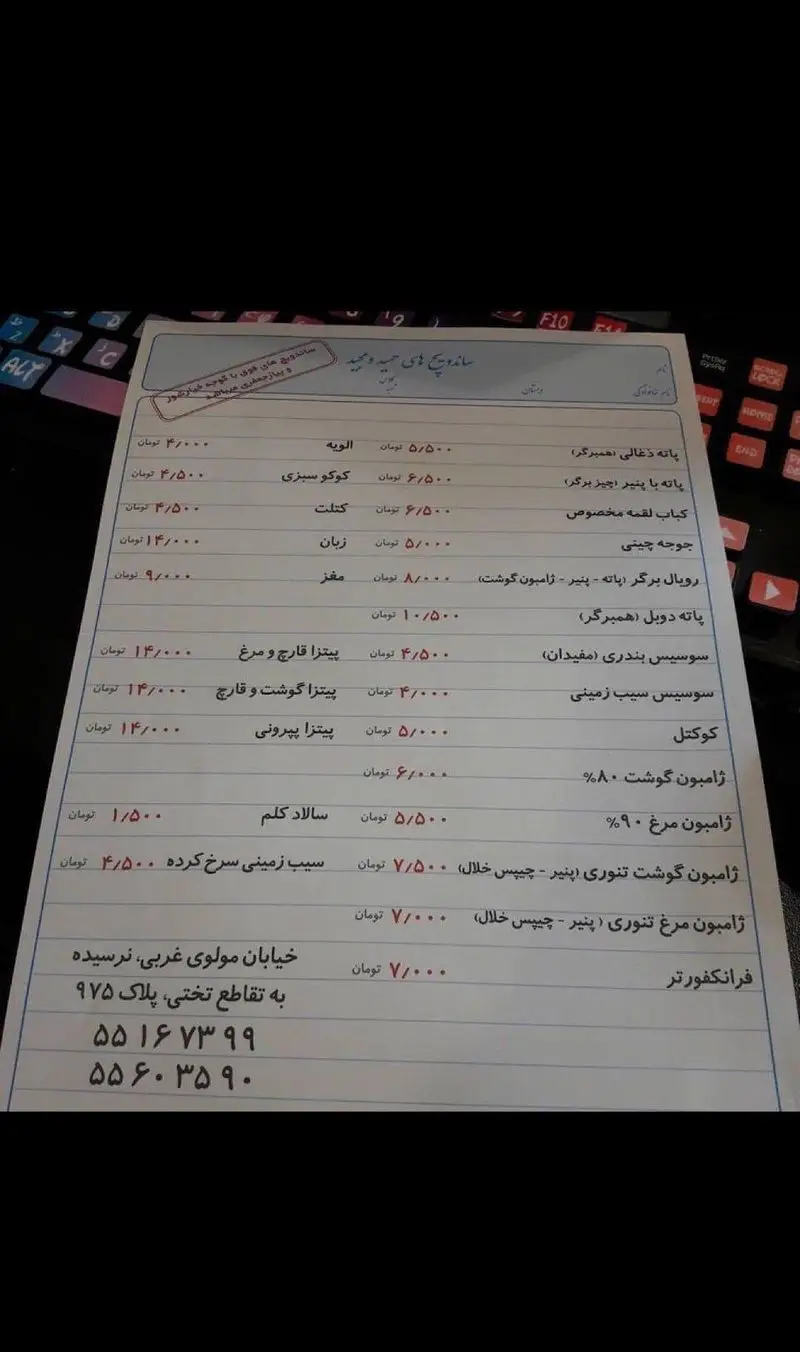 ساندویچ های حمید و مجید
نام
نام خانوادگی
دبستان
کلاس
ساندویچ های فوق با گوجه خیارشور
و پیازجعفری میباشد
پاته ذغالی (همبرگر) ۵/۵۰۰ تومان الویه ۴/۰۰۰ تومان
پاته با پنیر (چیز برگر) ۶/۵۰۰ تومان کوکو سبزی ۴/۵۰۰ تومان
کباب لقمه مخصوص ۶/۵۰۰ تومان کتلت ۴/۵۰۰ تومان
جوجه چینی ۵/۰۰۰ تومان زبان ۱۴/۰۰۰ تومان
رویال برگر (پاته - پنیر - ژامبون گوشت) ۸/۰۰۰ تومان مغز ۹/۰۰۰ تومان
پاته دوبل (همبرگر) ۱۰/۵۰۰ تومان
سوسیس بندری (مفیدان) ۴/۵۰۰ تومان پیتزا قارچ و مرغ ۱۴/۰۰۰ تومان
سوسیس سیب زمینی ۴/۰۰۰ تومان پیتزا گوشت و قارچ ۱۴/۰۰۰ تومان
کوکتل ۵/۰۰۰ تومان پیتزا پپرونی ۱۴/۰۰۰ تومان
ژامبون گوشت ۸۰% ۶/۰۰۰ تومان
ژامبون مرغ ۹۰% ۵/۵۰۰ تومان سالاد کلم ۱/۵۰۰ تومان
ژامبون گوشت تنوری (پنیر - چیپس خلال) ۷/۵۰۰ تومان سیب زمینی سرخ کرده ۴/۵۰۰ تومان
ژامبون مرغ تنوری ( پنیر - چیپس خلال) ۷/۰۰۰ تومان
فرانکفورتر ۷/۰۰۰ تومان
خیابان مولوی غربی، نرسیده
به تقاطع تختی، پلاک ۹۷۵
۵۵ ۱۶ ۷۳ ۹۹
۵۵ ۶۰ ۳۵ ۹۰
ALT
Z
X
C
D
9
F10
PrtScr
SysRq
LOCK
HOME
END